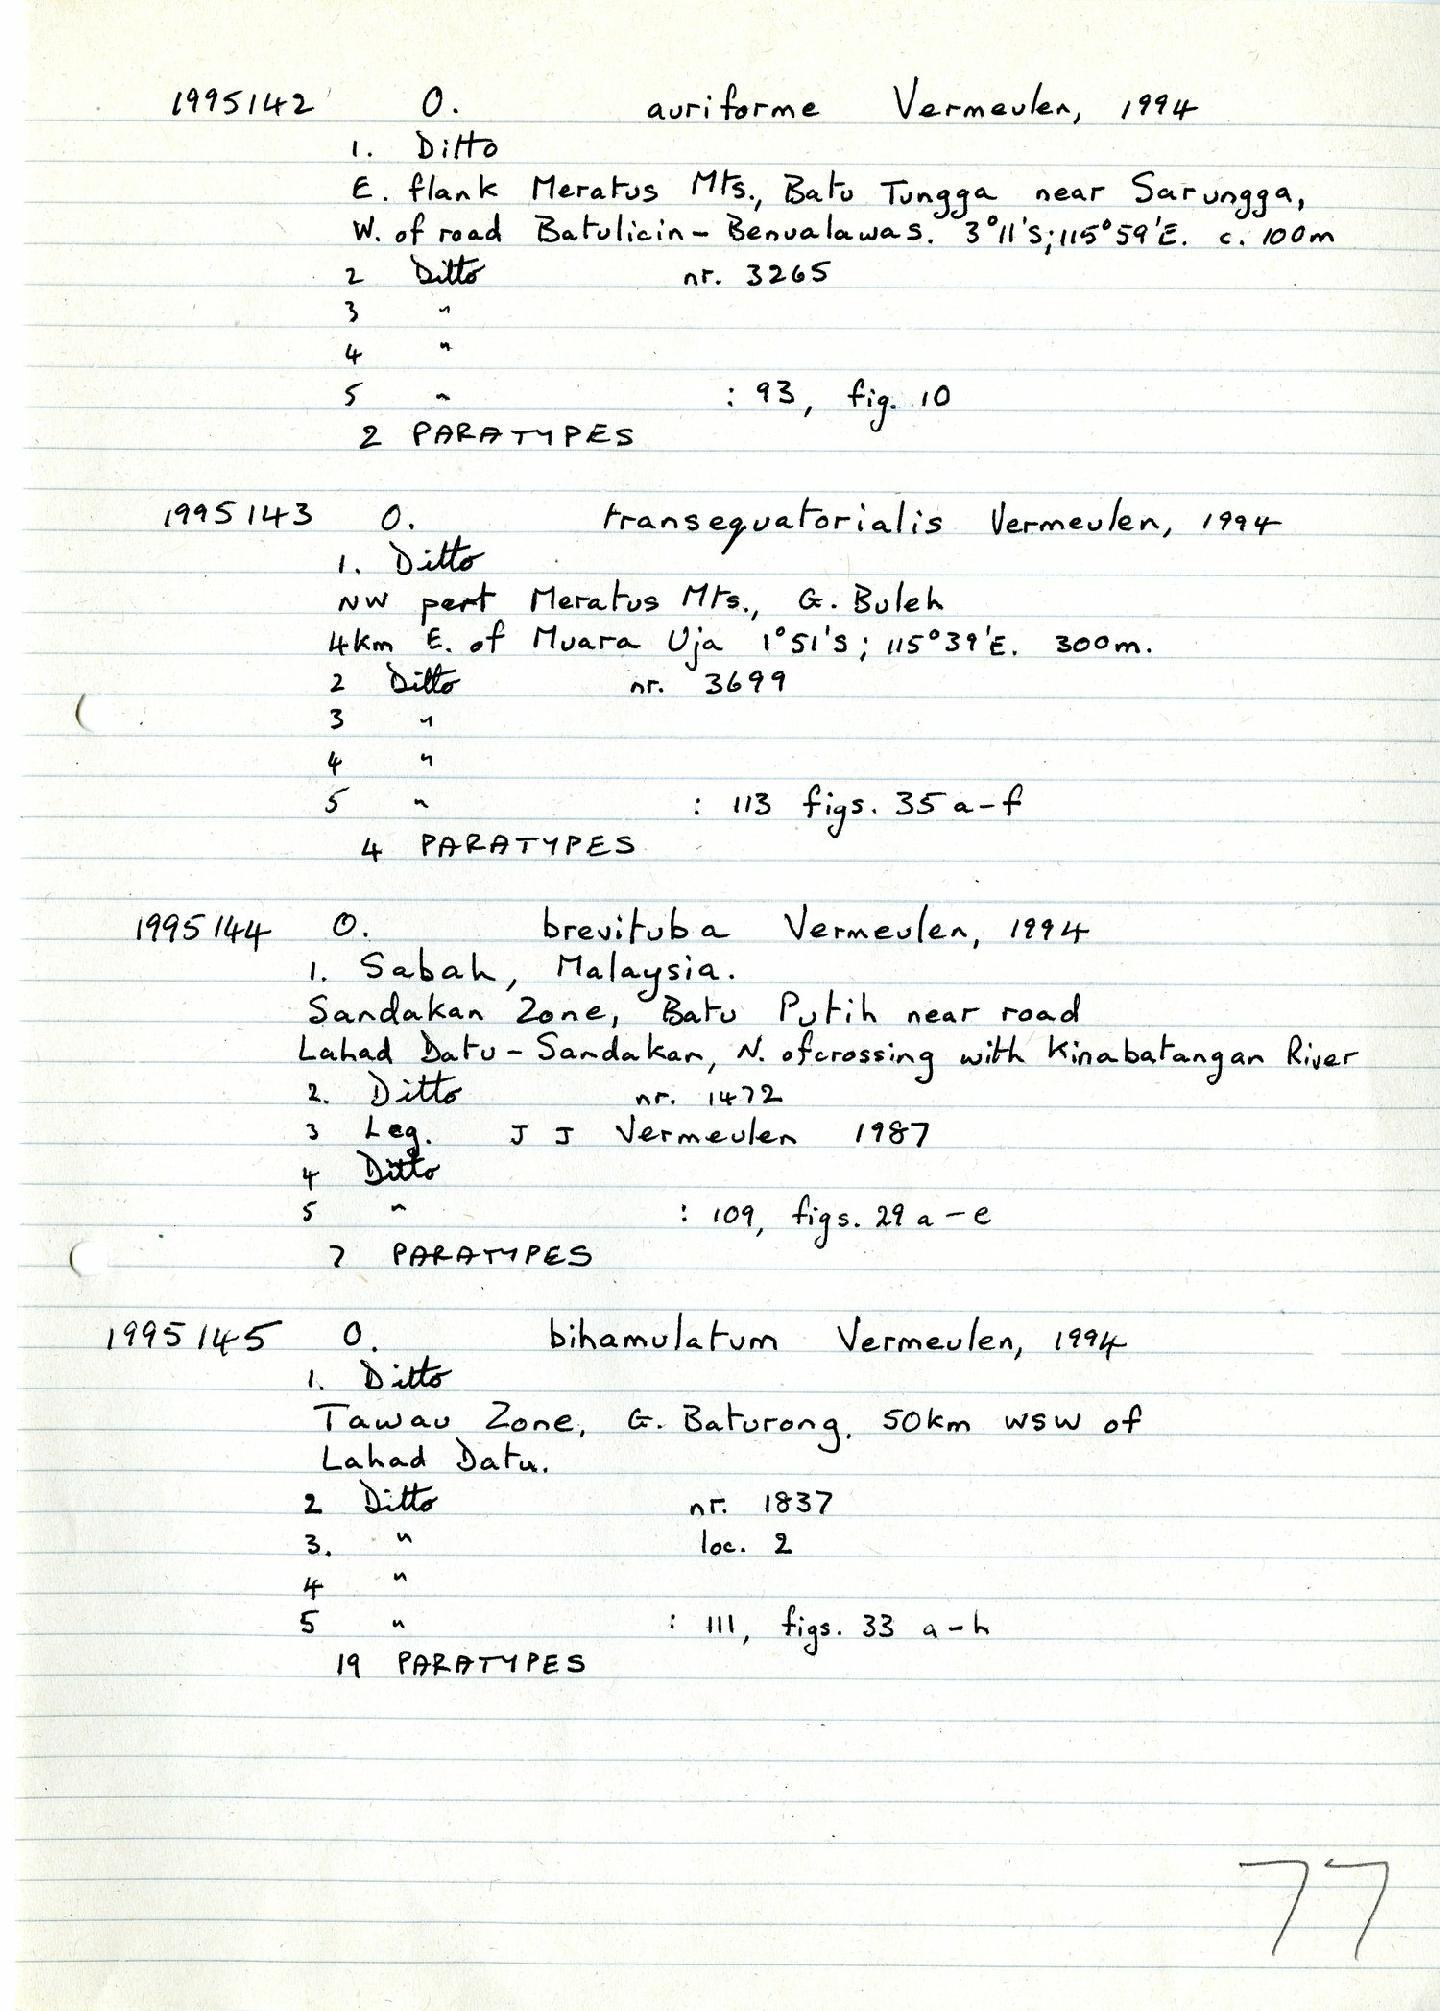 1995142 O. auriforme Vermeulen, 1994
1. Ditto
E. flank Meratus Mts., Batu Tungga near Sarungga,
W. of road Batulicin - Benualawas. 3°11'S; 115°59'E. c. 100m
2 Ditto nr. 3265
3 "
4 "
5 " : 93, fig. 10
2 PARATYPES
1995143 O. transequatorialis Vermeulen, 1994
1. Ditto
NW part Meratus Mts., G. Buleh
4km E. of Muara Uja 1°51'S; 115°39'E. 300m.
2 Ditto nr. 3699
3 "
4 "
5 " : 113 figs. 35 a-f
4 PARATYPES
1995144 O. brevituba Vermeulen, 1994
1. Sabah, Malaysia.
Sandakan Zone, Batu Putih near road
Lahad Datu - Sandakan, N. of crossing with Kinabatangan River
2. Ditto nr. 1472
3 Leg. J J Vermeulen 1987
4 Ditto
5 " : 109, figs. 29 a-e
7 PARATYPES
1995145 O. bihamulatum Vermeulen, 1994
1. Ditto
Tawau Zone, G. Baturong. 50km WSW of
Lahad Datu.
2 Ditto nr. 1837
3. " loc. 2
4 "
5 " : 111, figs. 33 a-h
19 PARATYPES
77